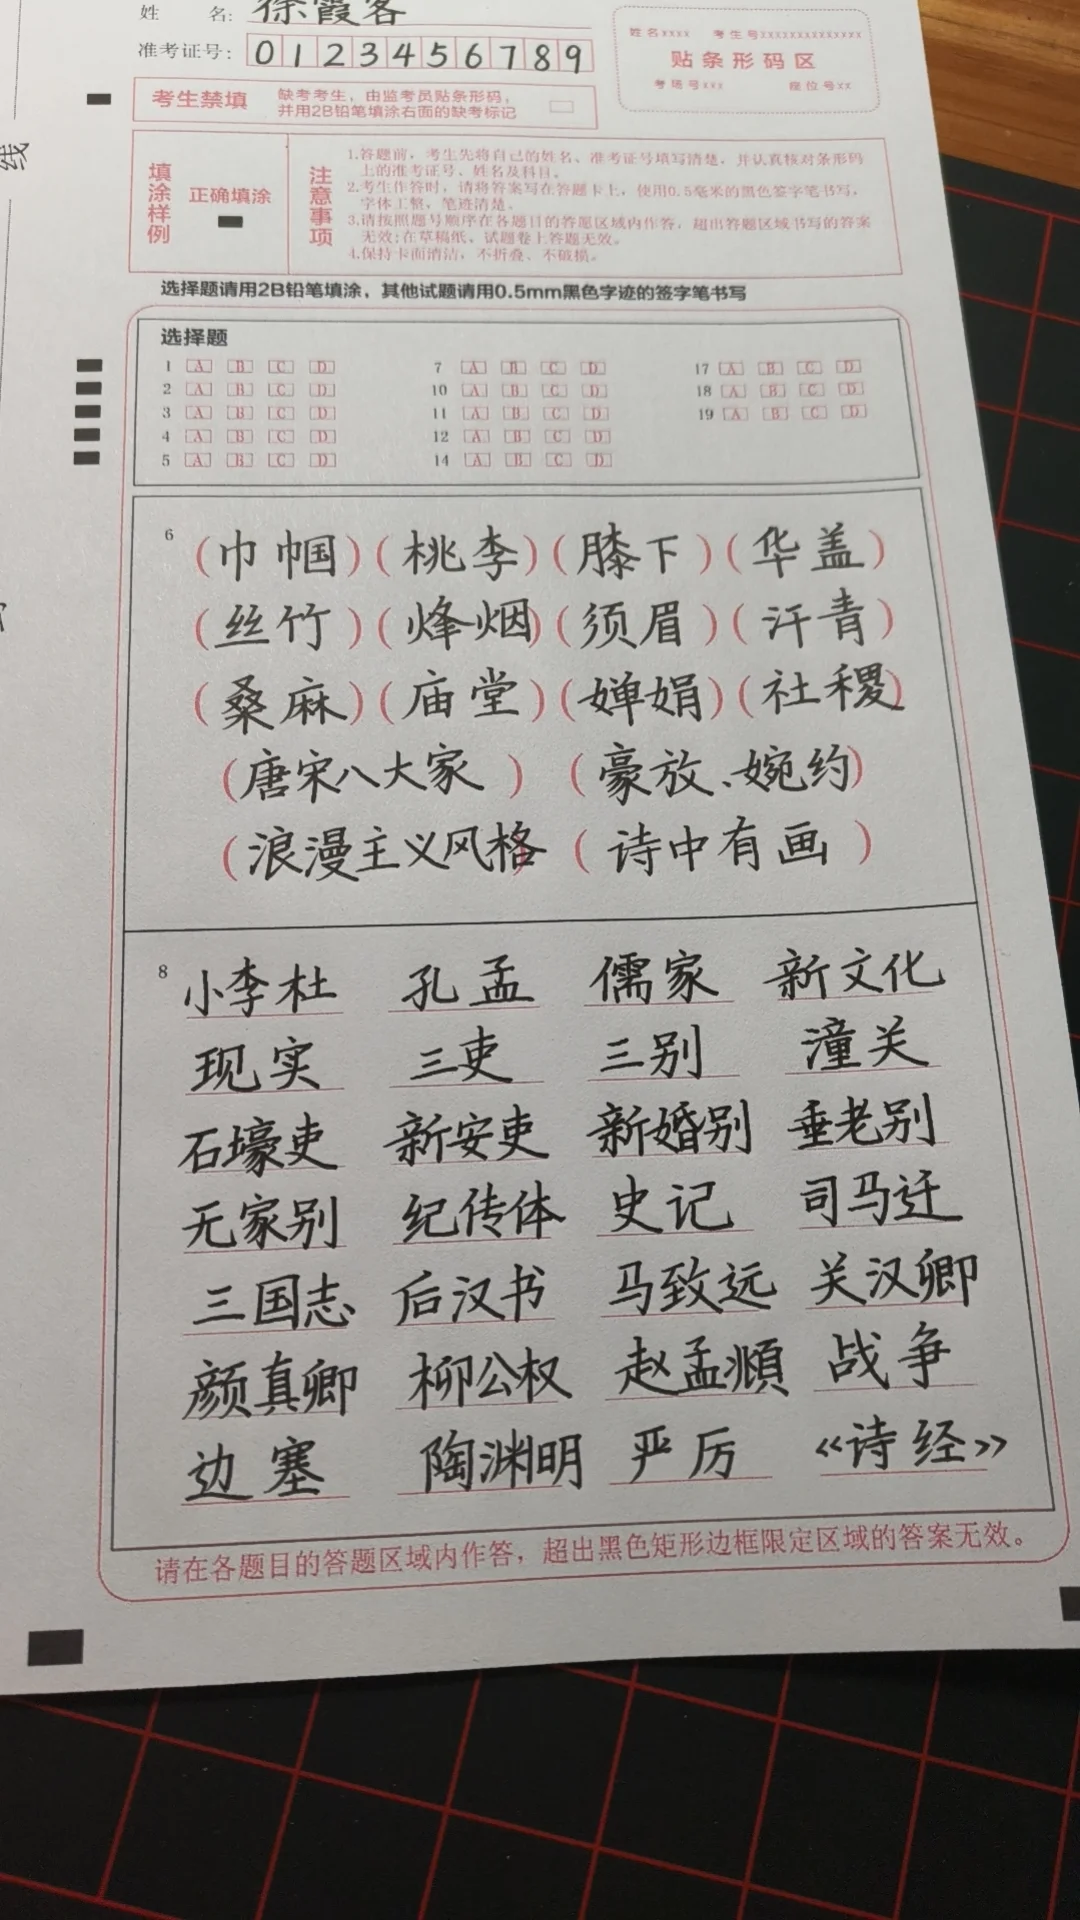 线
姓 名: 徐霞客
准考证号: 0 1 2 3 4 5 6 7 8 9
姓名xxxx 考生号xxxxxxxxxxxxxx
贴条形码区
考场号xxx 座位号xx
考生禁填 缺考考生，由监考员贴条形码，
并用2B铅笔填涂右面的缺考标记
填涂样例 正确填涂
注意事项
1.答题前，考生先将自己的姓名、准考证号填写清楚，并认真核对条形码
上的准考证号、姓名及科目。
2.考生作答时，请将答案写在答题卡上，使用0.5毫米的黑色签字笔书写，
字体工整，笔迹清楚。
3.请按照题号顺序在各题目的答题区域内作答，超出答题区域书写的答案
无效；在草稿纸、试题卷上答题无效。
4.保持卡面清洁，不折叠、不破损。
选择题请用2B铅笔填涂，其他试题请用0.5mm黑色字迹的签字笔书写
选择题
1 A B C D 7 A B C D 17 A B C D
2 A B C D 10 A B C D 18 A B C D
3 A B C D 11 A B C D 19 A B C D
4 A B C D 12 A B C D
5 A B C D 14 A B C D
6 (巾帼) (桃李) (膝下) (华盖)
(丝竹) (烽烟) (须眉) (汗青)
(桑麻) (庙堂) (婵娟) (社稷)
(唐宋八大家) (豪放、婉约)
(浪漫主义风格) (诗中有画)
8 小李杜 孔孟 儒家 新文化
现实 三吏 三别 潼关
石壕吏 新安吏 新婚别 垂老别
无家别 纪传体 史记 司马迁
三国志 后汉书 马致远 关汉卿
颜真卿 柳公权 赵孟頫 战争
边塞 陶渊明 严厉 《诗经》
请在各题目的答题区域内作答，超出黑色矩形边框限定区域的答案无效。